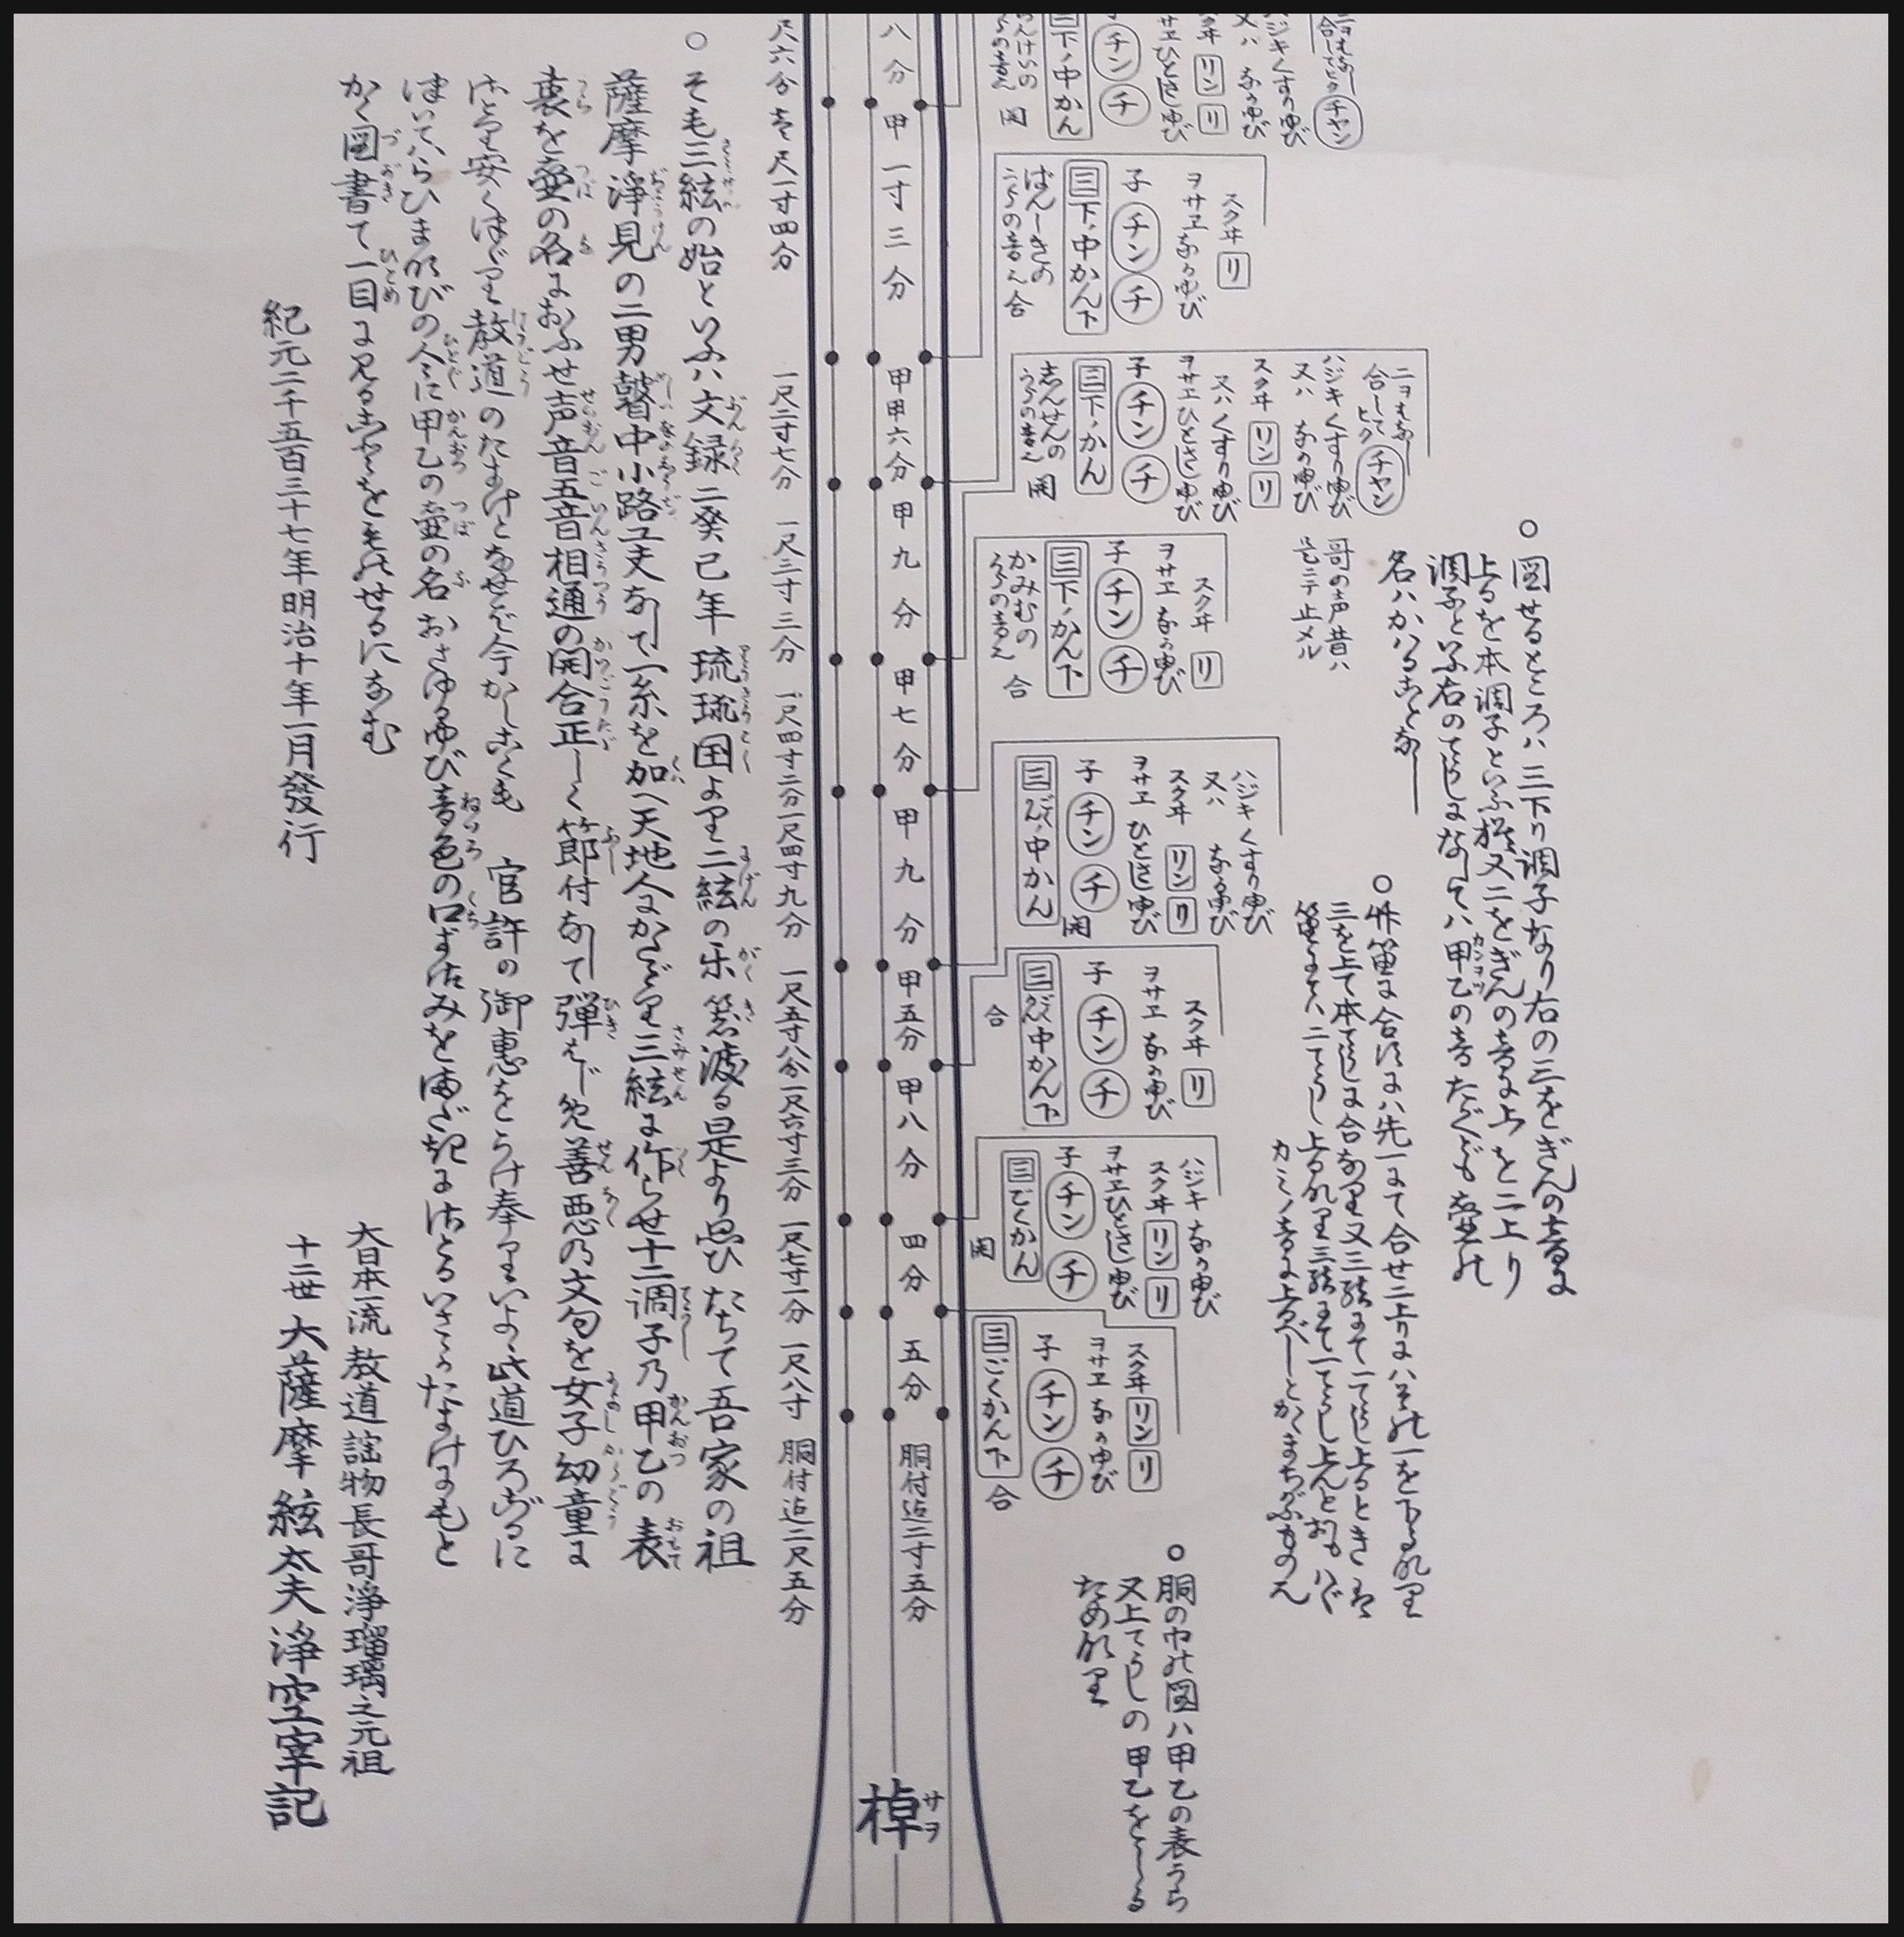 ○ 図せるところハ三下り調子なり右の三をぎんの音に
上るを本調子といふ 又二をぎんの音に上を二上り
調子といふ右のてうしになしてハ甲乙の音たぐども壷の
名ハかハることなし
哥の声昔ハ
是ニテ止メル
○竹笛に合にハ先一にて合せ二上りにハその一を下るなり
三を上て本てうしに合なり又三絃にて一てうし上るときは
笛にてハ二てうし上るなり三絃にて一てうし上んとおもハゞ
カミノ音に上べしとかくまちがふもの也
○胴の巾の図ハ甲乙の表うら
又上てうしの甲乙をしる
ためなり
ニヨもなし
合してヒク チヤン
ハジキくすりゆび
又ハ なかゆび
スクヰ リン リ
ヲサエひとさしゆび
子 チン チ
三下ノ中かん
うらの音也 開
スクヰ リ
ヲサエなかゆび
子 チン チ
三下ノ中かん下
ばんしきの
うらの音也 合
合して
ヒク チヤン
ハジキくすりゆび
又ハ なかゆび
スクヰ リン リ
又ハくすりゆび
ヲサエひとさしゆび
子 チン チ
三下ノかん
しんせんの
うらの音也 開
スクヰ リ
ヲサエ なかゆび
子 チン チ
三下ノかん下
かみむの
うらの音也 合
ハジキくすりゆび
又ハ なかゆび
スクヰ リン リ
ヲサエ ひとさしゆび
子 チン チ
中かん
開
スクヰ リ
ヲサエ なかゆび
子 チン チ
中かん下
合
ハジキ なかゆび
スクヰ リン リ
ヲサエひとさしゆび
子 チン チ
三ごくかん
開
スクヰ リン リ
ヲサエ なかゆび
子 チン チ
三ごくかん下
合
八分
甲一寸三分
甲甲六分
甲九分
甲七分
甲九分
甲五分
甲八分
四分
五分
胴付迠二寸五分
棹 サヲ
尺六分
壱尺一寸四分
一尺二寸七分
一尺三寸三分
一尺四寸二分
一尺四寸九分
一尺五寸八分
一尺六寸三分
一尺七寸一分
一尺八寸
胴付迠二尺五分
○そも三絃の始といふハ文録二癸己年琉球国より二絃の乐器渡る是より思ひたちて吾家の祖
薩摩浄見の二男瞽中小路工夫なして一糸を加へ天地人にかたどり三絃に作らせ十二調子乃甲乙の表
裏を壷の名におふせ声音五音相通の開合正しく節付なして弾はじめ善悪乃文句を女子幼童に
さとり安くほどり教道のたすけとなせど今かしこくも 官許の御惠をうけ奉りいよ〻此道ひろむるに
ほいてハうひまなびの人々に甲乙の壷の名おさゆるゆび音色の口ずさみを
かく図書て一目に見ることをものせるになむ
紀元二千五百三十七年明治十年一月發行
大日本一流教道謡物長哥浄瑠璃之元祖
十二世 大薩摩絃太夫浄空宰記